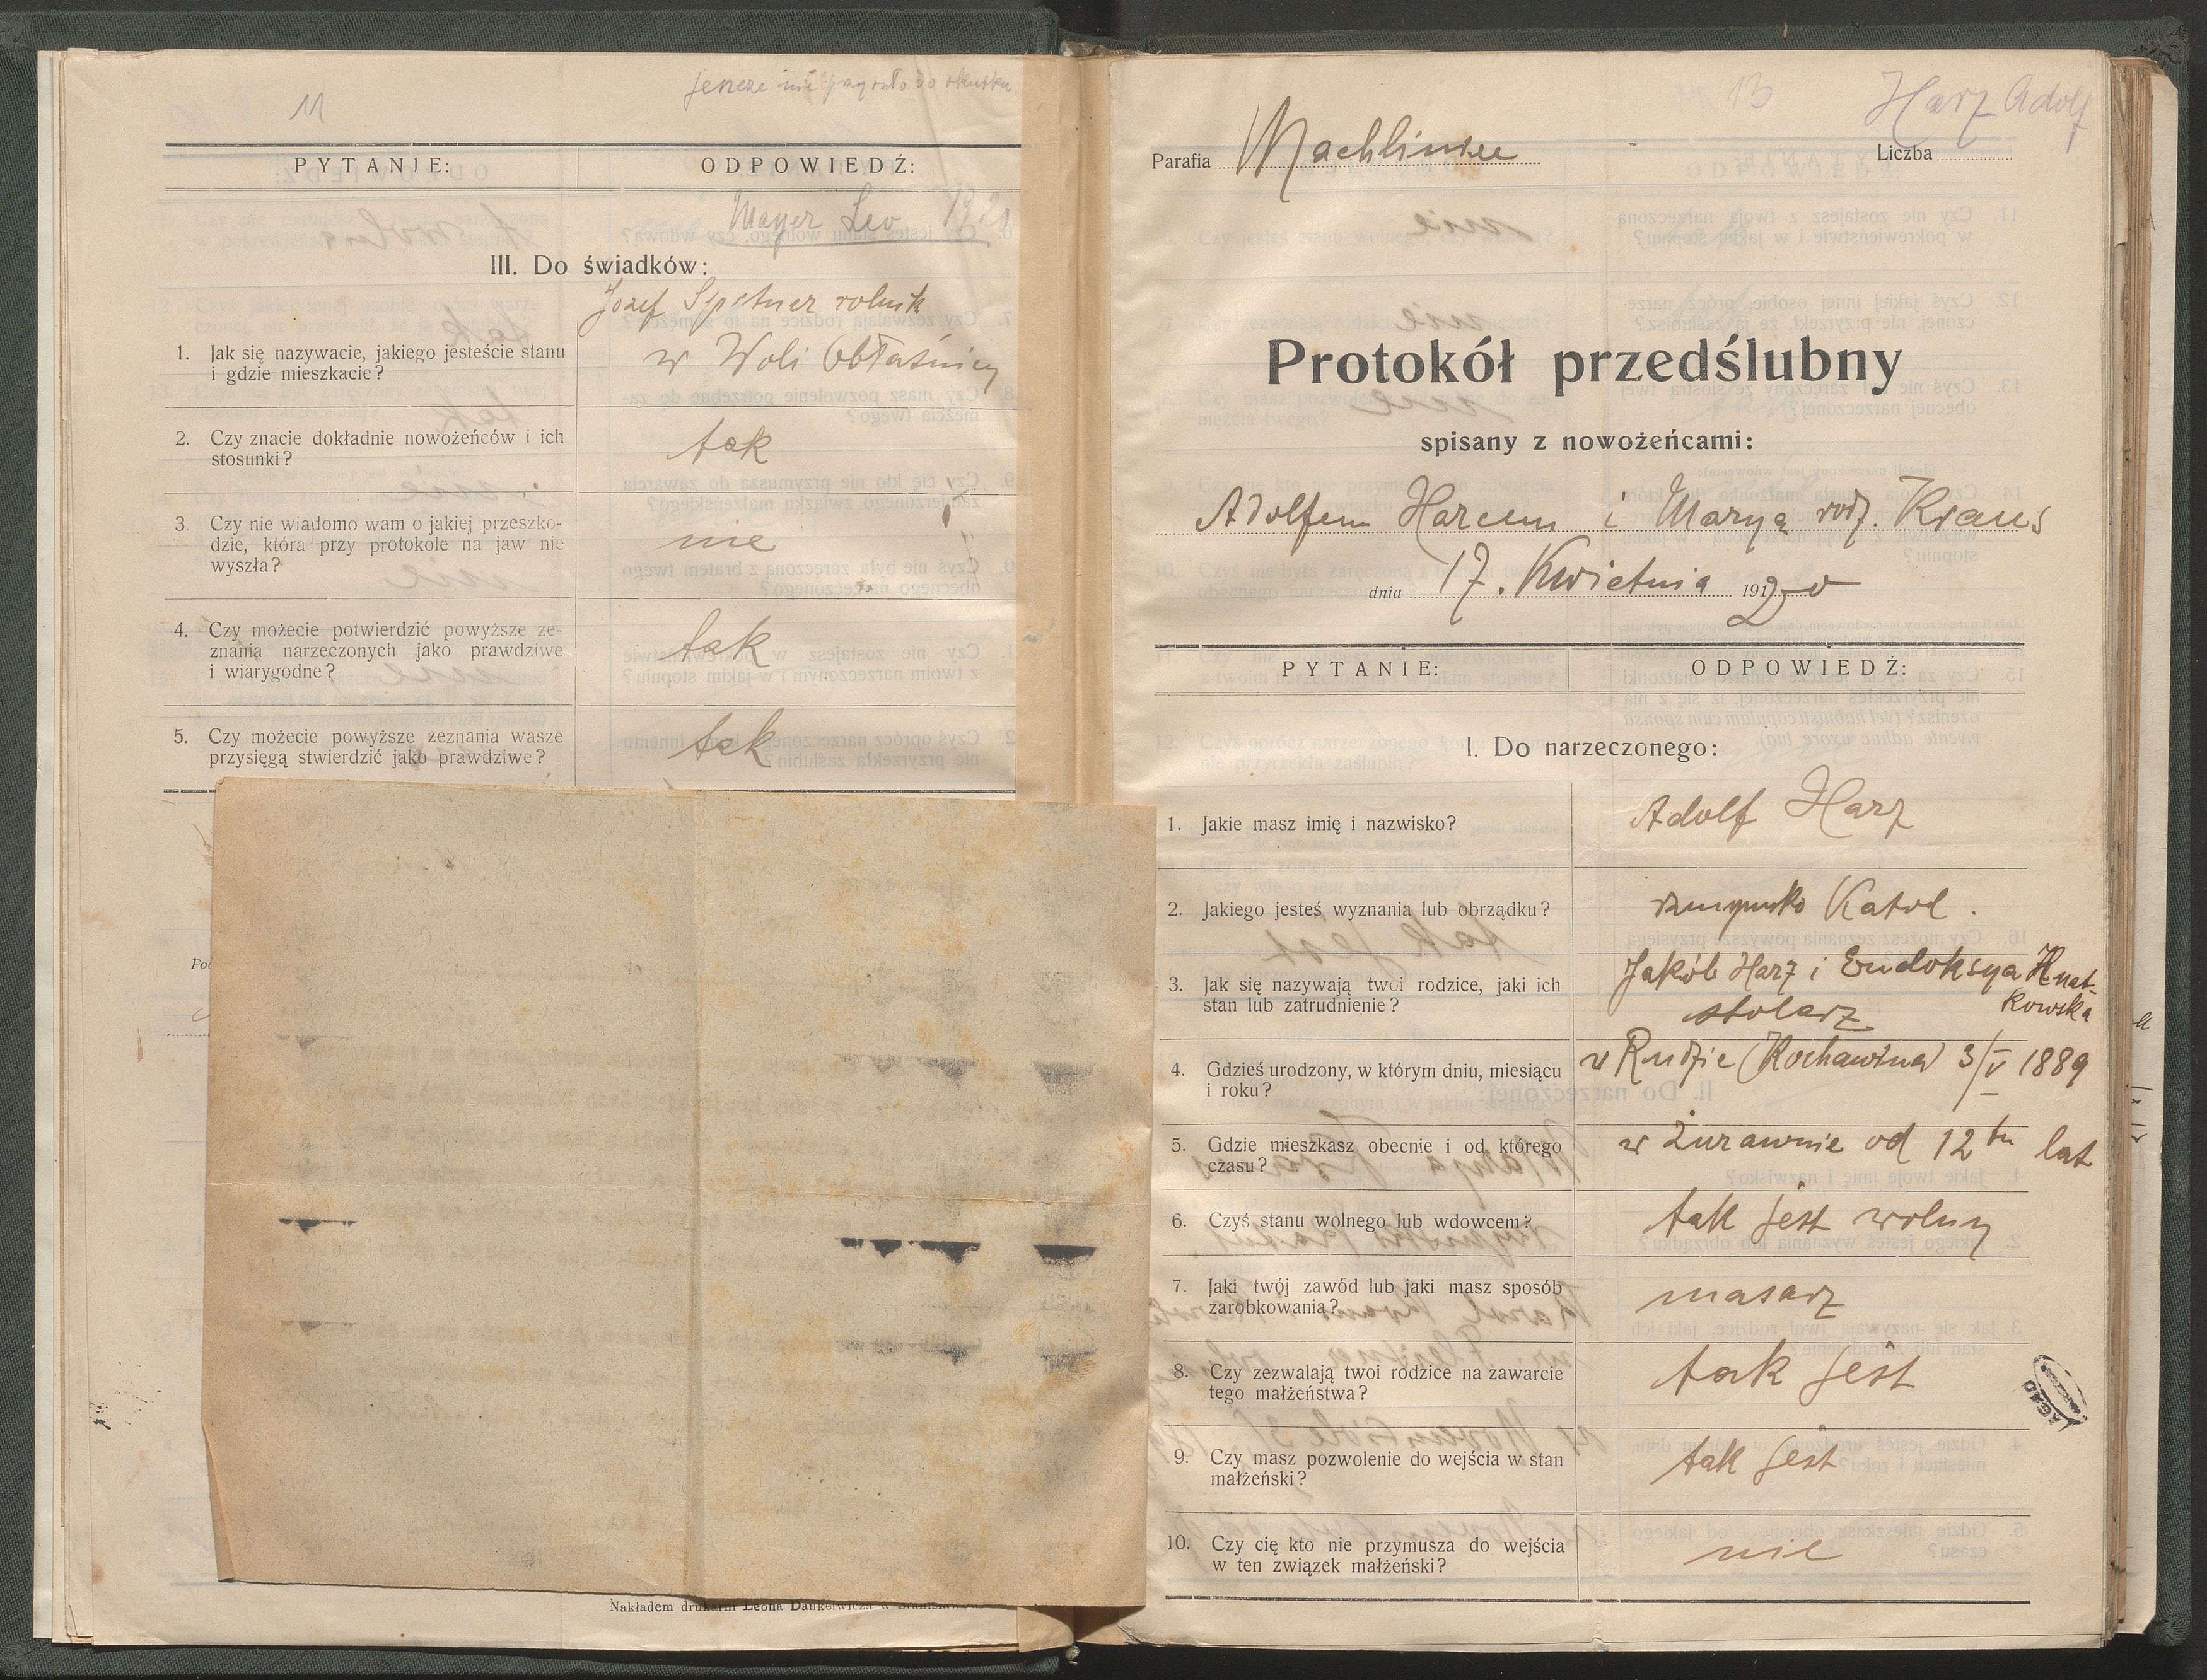 11
jeszcze nie
PYTANIE: ODPOWIEDŹ:
Mayer Leo
III. Do świadków:
Józef rolnik
1. Jak się nazywacie, jakiego jesteście stanu
i gdzie mieszkacie?
w Woli Obłaźnicy
2. Czy znacie dokładnie nowożeńców i ich
stosunki?
tak
3. Czy nie wiadomo wam o jakiej przeszko-
dzie, która przy protokole na jaw nie
wyszła?
nie
4. Czy możecie potwierdzić powyższe ze-
znania narzeczonych jako prawdziwe
i wiarygodne?
tak
5. Czy możecie powyższe zeznania wasze
przysięgą stwierdzić jako prawdziwe?
tak
Nakładem drukarni Leona
13
Harz Adolf
Parafia Machliniec
Liczba
Protokół przedślubny
spisany z nowożeńcami:
Adolfem Harcem i Maryą rodz. Kraus
dnia 17. Kwietnia 1920
PYTANIE: ODPOWIEDŹ:
I. Do narzeczonego:
1. Jakie masz imię i nazwisko?
Adolf Harz
2. Jakiego jesteś wyznania lub obrządku?
rzymsko Katol.
3. Jak się nazywają twoi rodzice, jaki ich
stan lub zatrudnienie?
Jakób Harz i Eudoksya Hnat-
kowska
stolarz
4. Gdzieś urodzony, w którym dniu, miesiącu
i roku?
w Rudzie (Kochawina) 3/V 1889
5. Gdzie mieszkasz obecnie i od którego
czasu?
w Żurawnie od 12tu lat
6. Czyś stanu wolnego lub wdowcem?
tak jest wolny
7. Jaki twój zawód lub jaki masz sposób
zarobkowania?
masarz
8. Czy zezwalają twoi rodzice na zawarcie
tego małżeństwa?
tak jest
9. Czy masz pozwolenie do wejścia w stan
małżeński?
tak jest
10. Czy cię kto nie przymusza do wejścia
w ten związek małżeński?
nie
AGAD